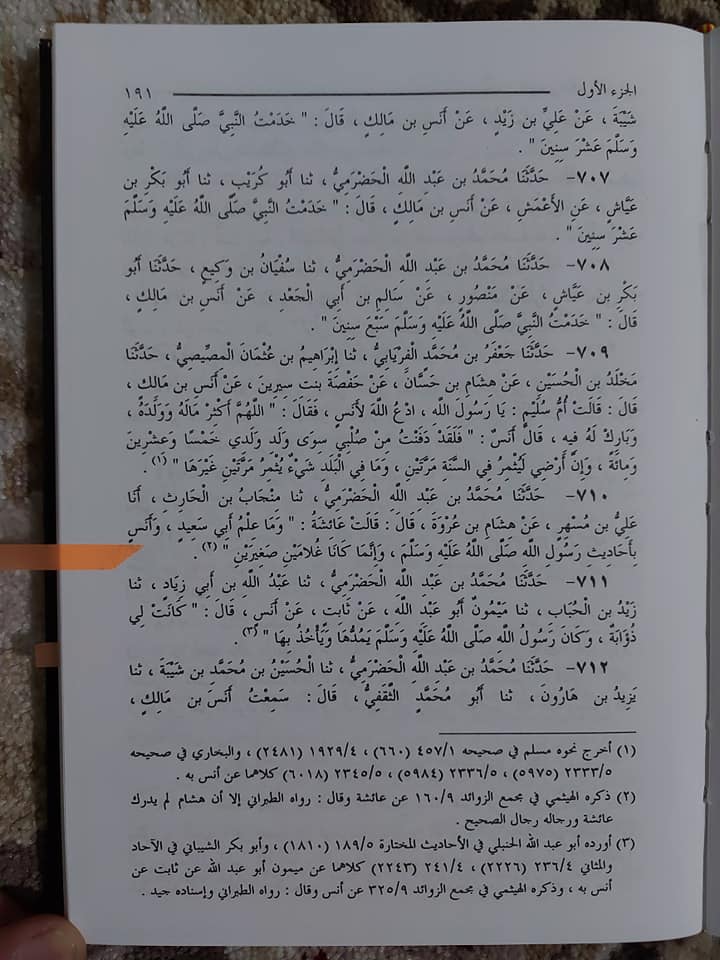 الجزء الأول ١٩١
شَيْبَةَ ، عَنْ عَلِيِّ بن زَيْدٍ ، عَنْ أَنَسِ بن مَالِكٍ ، قَالَ : " خَدَمْتُ النَّبِيَّ صَلَّى اللَّهُ عَلَيْهِ
وَسَلَّمَ عَشْرَ سِنِينَ " .
٧٠٧- حَدَّثَنَا مُحَمَّدُ بن عَبْدِ اللَّهِ الْحَضْرَمِيُّ ، ثنا أَبُو كُرَيْبٍ ، ثنا أَبُو بَكْرِ بن
عَيَّاشٍ ، عَنِ الأَعْمَشِ ، عَنْ أَنَسِ بن مَالِكٍ ، قَالَ : " خَدَمْتُ النَّبِيَّ صَلَّى اللَّهُ عَلَيْهِ وَسَلَّمَ
عَشْرَ سِنِينَ " .
٧٠٨- حَدَّثَنَا مُحَمَّدُ بن عَبْدِ اللَّهِ الْحَضْرَمِيُّ ، ثنا سُفْيَانُ بن وَكِيعٍ ، حَدَّثَنَا أَبُو
بَكْرِ بن عَيَّاشٍ ، عَنْ مَنْصُورٍ ، عَنْ سَالِمِ بن أَبِي الْجَعْدِ ، عَنْ أَنَسِ بن مَالِكٍ ،
قَالَ : " خَدَمْتُ النَّبِيَّ صَلَّى اللَّهُ عَلَيْهِ وَسَلَّمَ سَبْعَ سِنِينَ " .
٧٠٩- حَدَّثَنَا جَعْفَرُ بن مُحَمَّدٍ الْفِرْيَابِيُّ ، ثنا إِبْرَاهِيمُ بن عُثْمَانَ الْمِصِّيصِيُّ ، حَدَّثَنَا
مَخْلَدُ بن الْحُسَيْنِ ، عَنْ هِشَامِ بن حَسَّانَ ، عَنْ حَفْصَةَ بنت سِيرِينَ ، عَنْ أَنَسِ بن مَالِكٍ ،
قَالَ : قَالَتْ أُمُّ سُلَيْمٍ : يَا رَسُولَ اللَّهِ ، ادْعُ اللَّهَ لأَنَسٍ ، فَقَالَ : " اللَّهُمَّ أَكْثِرْ مَالَهُ وَوَلَدَهُ ،
وَبَارِكْ لَهُ فِيهِ ، قَالَ أَنَسٌ : " فَلَقَدْ دَفَنْتُ مِنْ صُلْبِي سِوَى وَلَدِ وَلَدِي خَمْسًا وَعشْرِينَ
وَمِائَةً ، وَإِنَّ أَرْضِي لَيُثْمِرُ فِي السَّنَةِ مَرَّتَيْنِ ، وَمَا فِي الْبَلَدِ شَيْءٌ يُثْمِرُ مَرَّتَيْنِ غَيْرَهَا " (١) .
٧١٠- حَدَّثَنَا مُحَمَّدُ بن عَبْدِ اللَّهِ الْحَضْرَمِيُّ ، ثنا مِنْجَابُ بن الْحَارِثِ ، أَنَا
عَلِيُّ بن مُسْهِرٍ ، عَنْ هِشَامِ بن عُرْوَةَ ، قَالَ : قَالَتْ عَائِشَةُ : " وَمَا عِلْمُ أَبِي سَعِيدٍ ، وَأَنَسٍ
بِأَحَادِيثِ رَسُولِ اللَّهِ صَلَّى اللَّهُ عَلَيْهِ وَسَلَّمَ ، وَإِنَّمَا كَانَا غُلامَيْنِ صَغِيرَيْنِ " (٢) .
٧١١- حَدَّثَنَا مُحَمَّدُ بن عَبْدِ اللَّهِ الْحَضْرَمِيُّ ، ثنا عَبْدُ اللَّهِ بن أَبِي زِيَادٍ ، ثنا
زَيْدُ بن الْحُبَابِ ، ثنا مَيْمُونٌ أَبُو عَبْدِ اللَّهِ ، عَنْ ثَابِتٍ ، عَنْ أَنَسٍ ، قَالَ : " كَانَتْ لِي
ذُؤَابَةٌ ، وَكَانَ رَسُولُ اللَّهِ صَلَّى اللَّهُ عَلَيْهِ وَسَلَّمَ يَمُدُّهَا وَيَأْخُذُ بِهَا " (٣) .
٧١٢- حَدَّثَنَا مُحَمَّدُ بن عَبْدِ اللَّهِ الْحَضْرَمِيُّ ، ثنا الْحُسَيْنُ بن مُحَمَّدِ بن شَيْبَةَ ، ثنا
يَزِيدُ بن هَارُونَ ، ثنا أَبُو مُحَمَّدٍ الثَّقَفِيُّ ، قَالَ : سَمِعْتُ أَنَسَ بن مَالِكٍ ،
(١) أخرج نحوه مسلم في صحيحه ٤٥٧/١ (٦٦٠) ، ١٩٢٩/٤ (٢٤٨١) ، والبخاري في صحيحه
٢٣٣٣/٥ (٥٩٧٥) ، ٢٣٣٦/٥ (٥٩٨٤) ، ٢٣٤٥/٥ (٦٠١٨) كلاهما عن أنس به .
(٢) ذكره الهيثمي في مجمع الزوائد ١٦٠/٩ عن عائشة وقال : رواه الطبراني إلا أن هشام لم يدرك
عائشة ورجاله رجال الصحيح .
(٣) أورده أبو عبد الله الحنبلي في الأحاديث المختارة ١٨٩/٥ (١٨١٠) ، وأبو بكر الشيباني في الآحاد
والمثاني ٢٣٦/٤ (٢٢٢٦) ، ٢٤١/٤ (٢٢٤٣) كلاهما عن ميمون أبو عبد الله عن ثابت عن
أنس به ، وذكره الهيثمي في مجمع الزوائد ٣٢٥/٩ عن أنس وقال : رواه الطبراني وإسناده جيد .